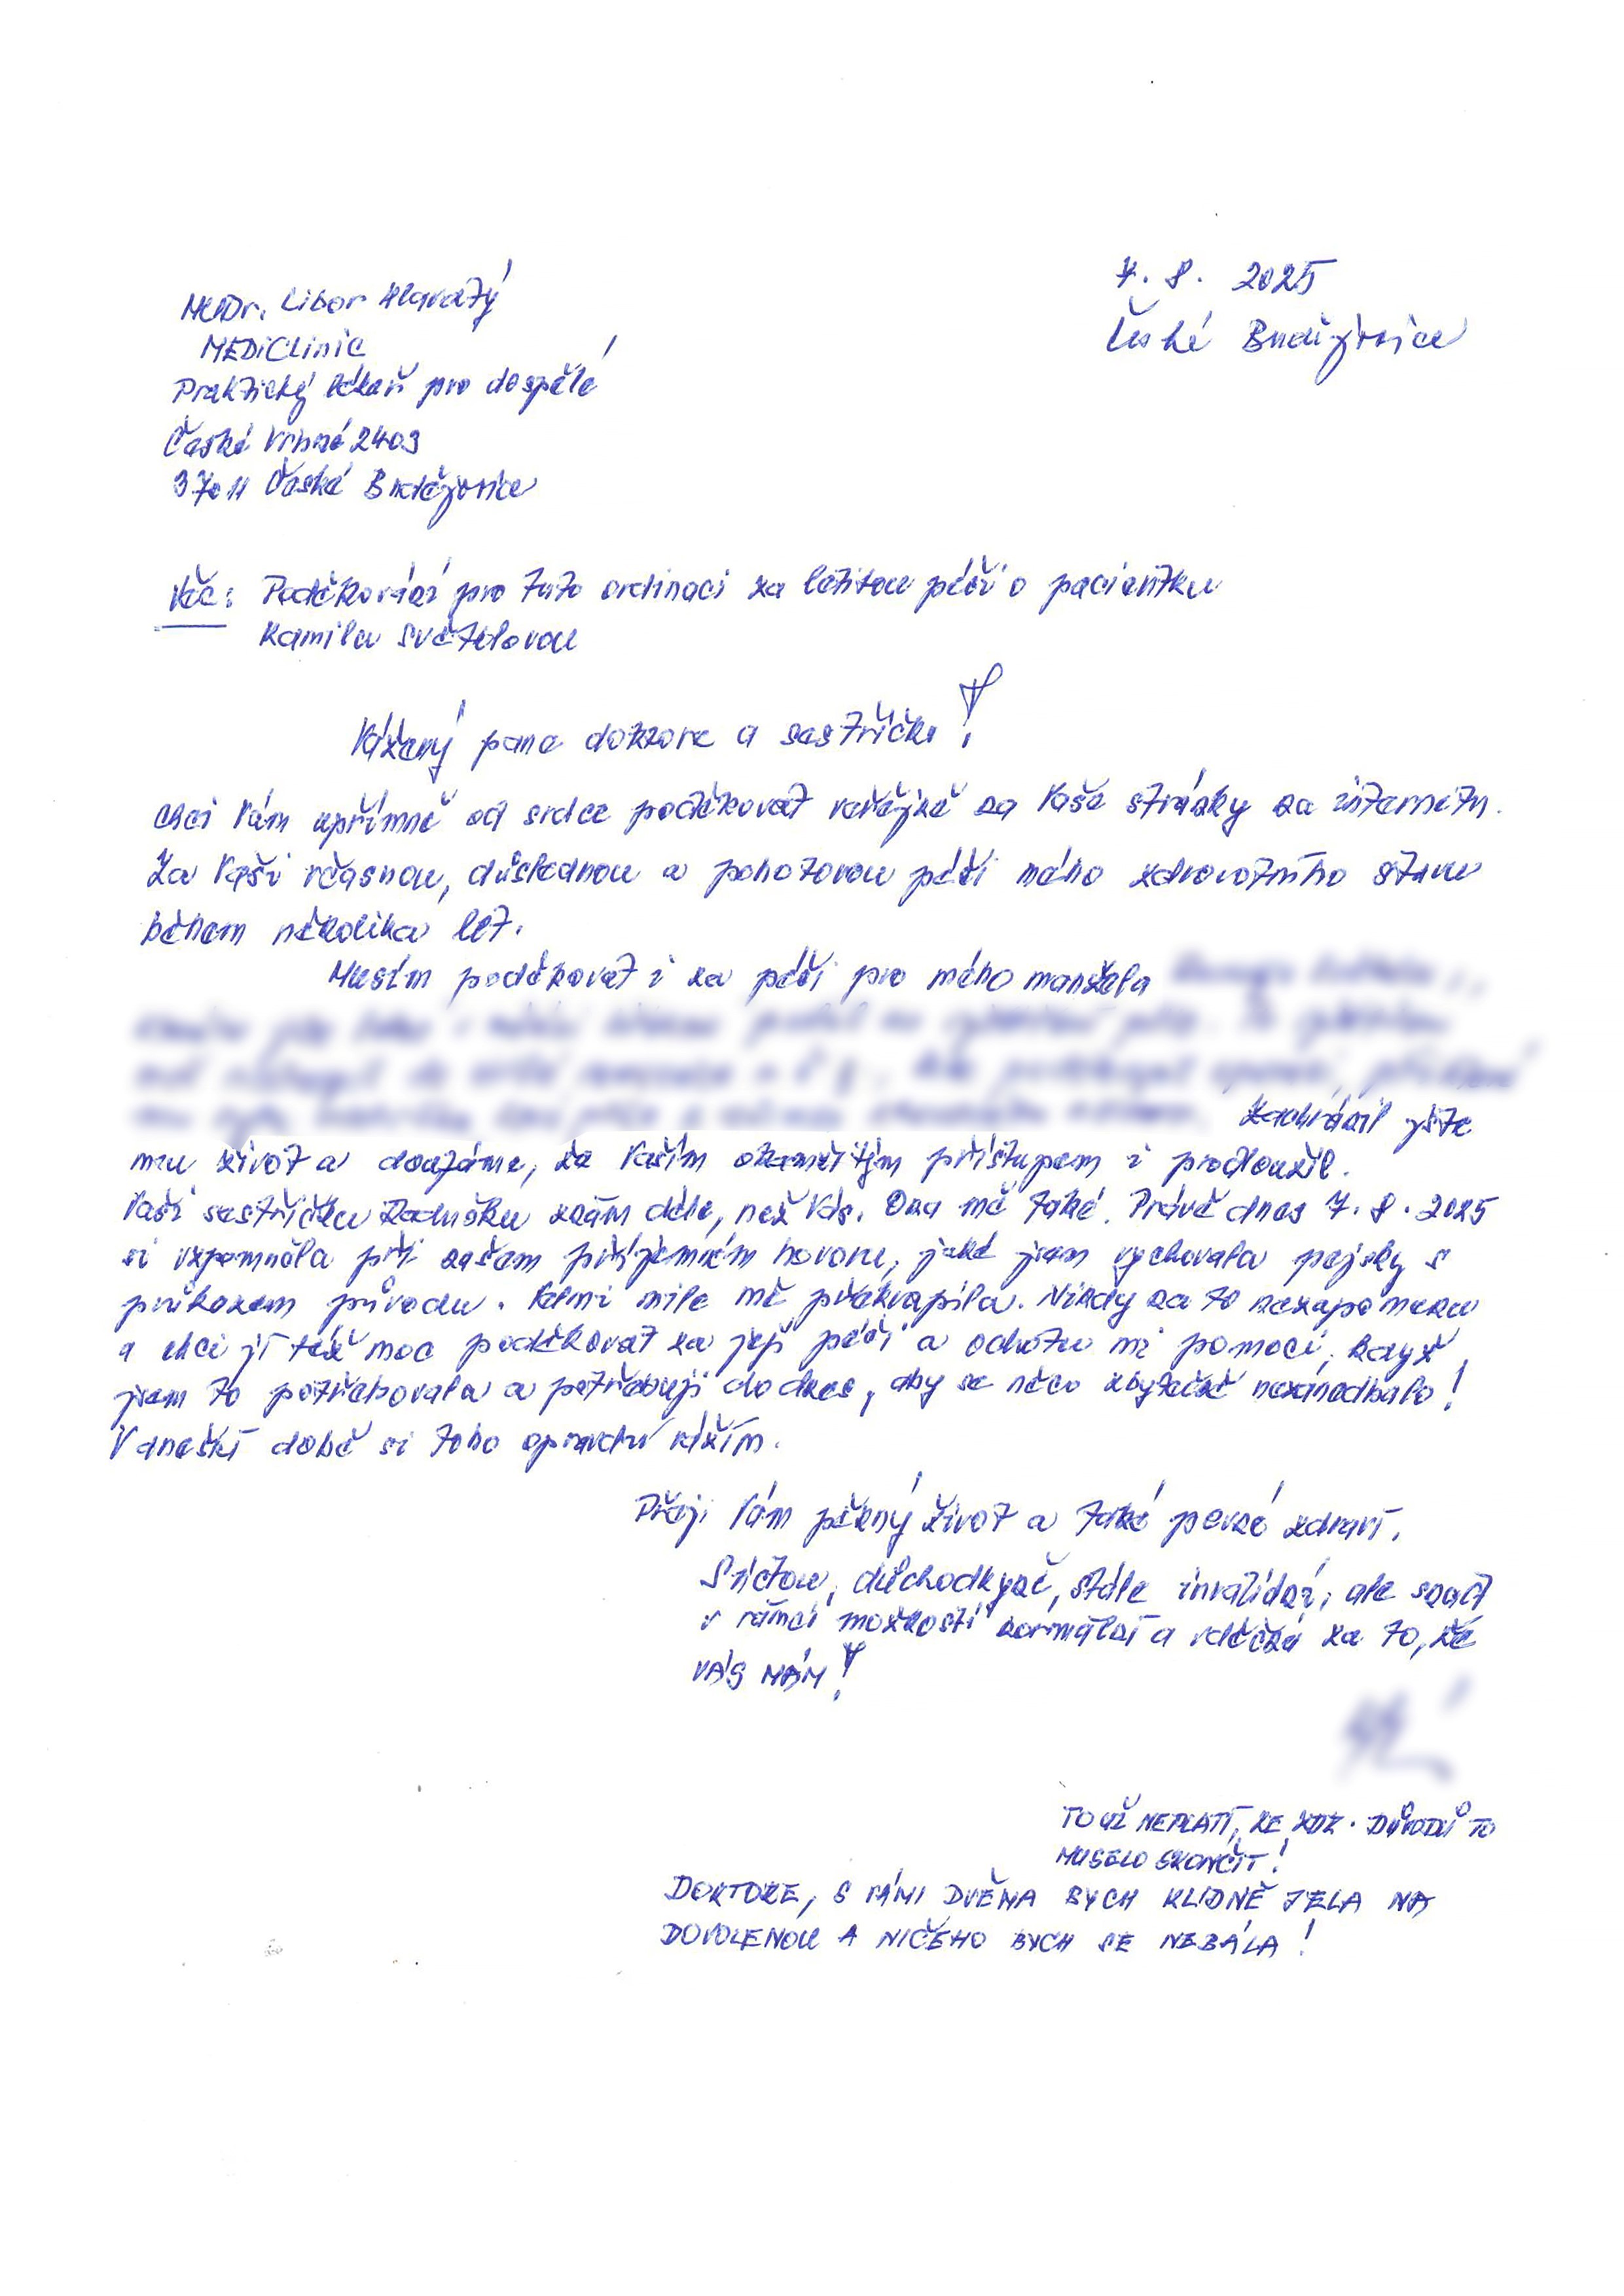 7. 8. 2025
České Budějovice
MUDr. Libor Hlavatý
MEDiClinic
Praktický lékař pro dospělé
České Vrbné 2403
37011 České Budějovice
Věc: Poděkování pro tuto ordinaci za letitou péči o pacientku
Kamilu Světelovou
Vážený pane doktore a sestřičko!
chci Vám upřímně od srdce poděkovat veřejně na Vaše stránky na internetu.
Za Vaši včasnou, důslednou a pohotovou péči mého zdravotního stavu
během několika let.
Musím poděkovat i za péči pro mého manžela
Zachránil jste
mu život a doufáme, že Vašim okamžitým přístupem i prodloužil.
Vaši sestřičku Radušku znám déle, než Vás. Ona mě také. Právě dnes 7. 8. 2025
si vzpomněla při našem příjemném hovoru, jaké jsem vychovala pejsky s
průkazem původu. Velmi mile mě překvapila. Nikdy na to nezapomenu
a chci jí též moc poděkovat za její péči a ochotu mi pomoci, když
jsem to potřebovala a potřebuji do dnes, aby se něco zbytečně nezanedbalo!
V dnešní době si toho opravdu vážím.
Přeji Vám pěkný život a také pevné zdraví.
S úctou, důchodkyně, stále invalidní, ale snad
v rámci možností normální a vděčná za to, že
VÁS MÁM!
TO UŽ NEPLATÍ, ZE ZDR. DŮVODŮ TO
MUSELO SKONČIT!
DOKTORE, S VÁMI DVĚMA BYCH KLIDNĚ JELA NA
DOVOLENOU A NIČEHO BYCH SE NEBÁLA!